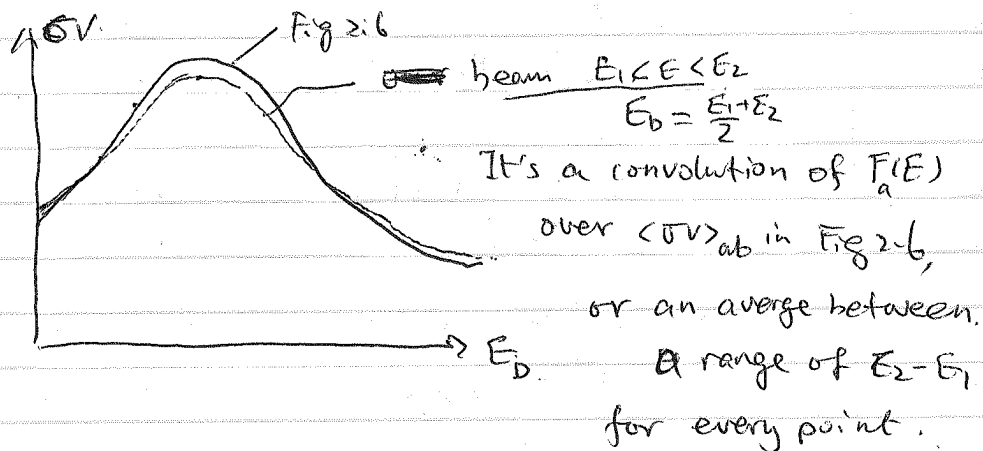 σV.
Fig 2.6
beam E₁<E<E₂
E_D = (E₁+E₂)/2
It's a convolution of F_a(E)
over <σv>_ab in Fig 2-6,
or an averge between.
a range of E₂-E₁
for every point.
E_D